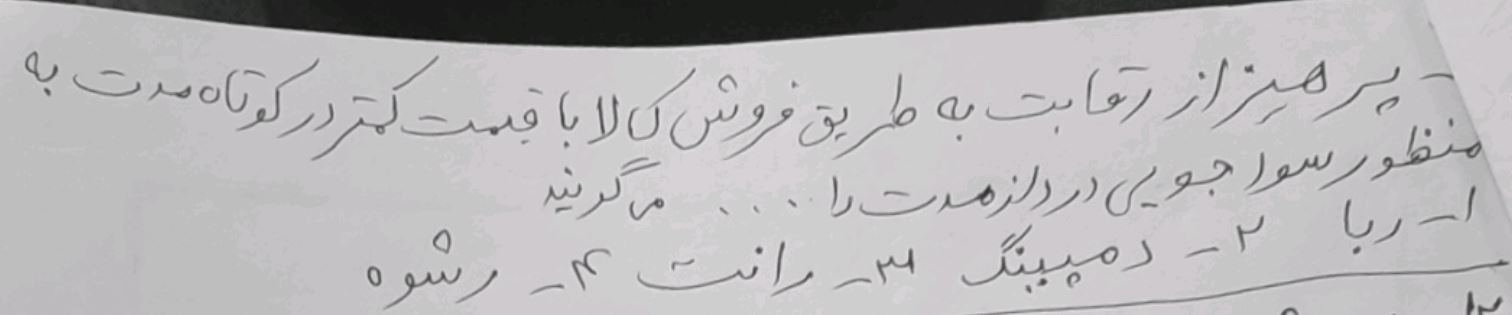 - پرهیز از رقابت به طریق فروش کالا با قیمت کمتر در کوتاه مدت به
منظور سود جویی در دراز مدت را .... می گویند
۱- ربا ۲- دمپینگ ۳- رانت ۴- رشوه